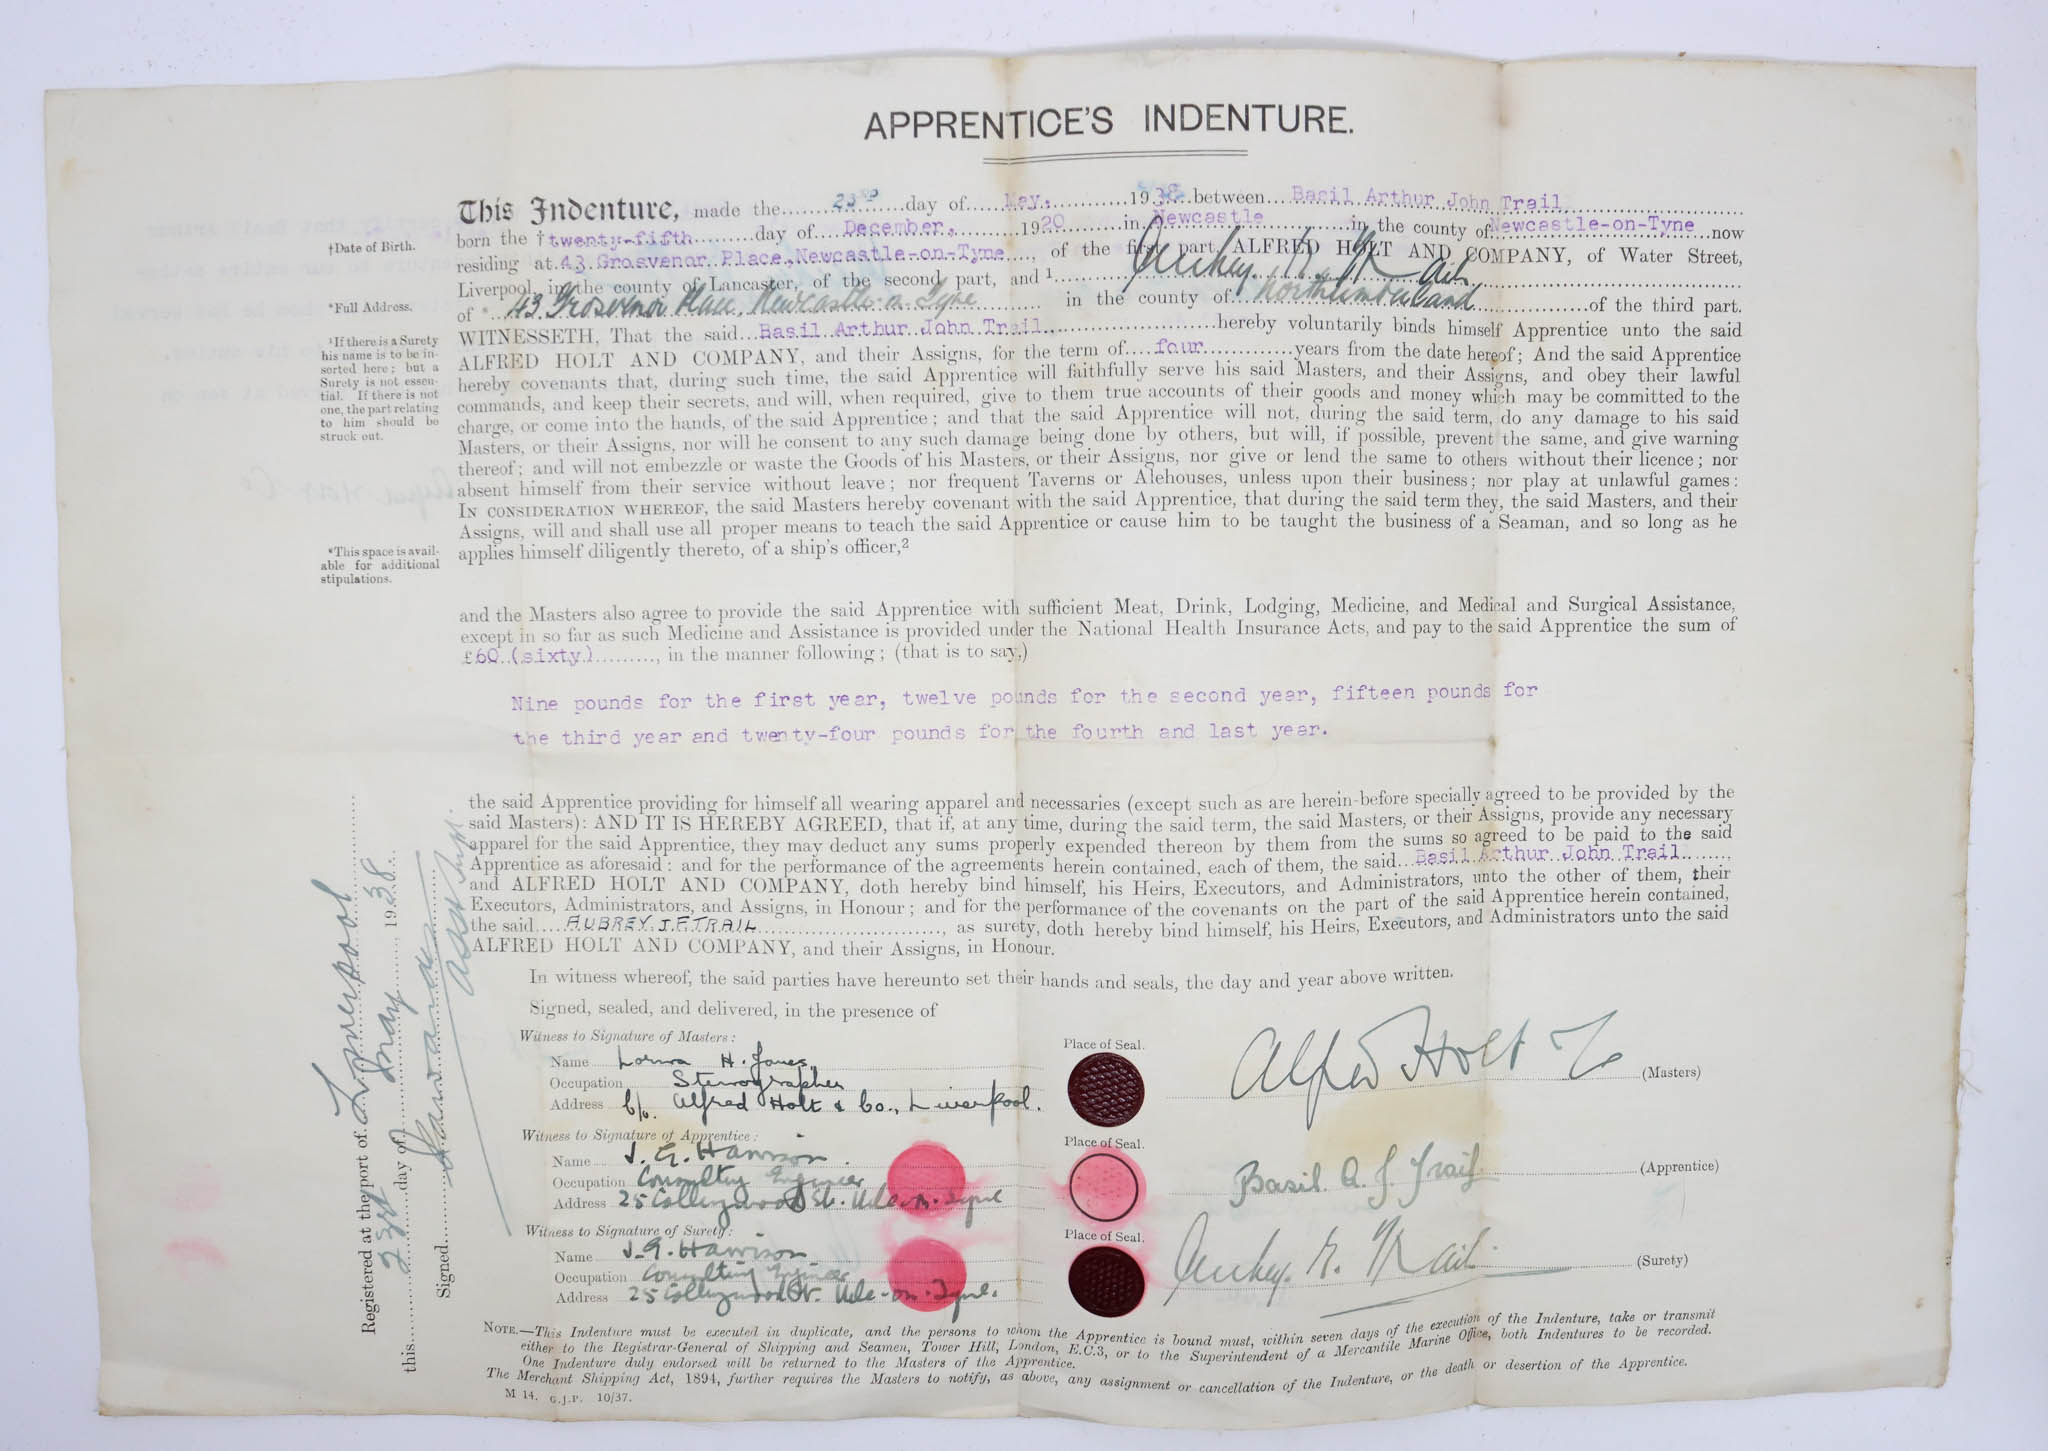 APPRENTICE'S INDENTURE.
This Indenture, made the 23rd day of May, 1938 between Basil Arthur John Trail
born the † twenty-fifth day of December, 1920 in Newcastle in the county of Newcastle-on-Tyne now
residing at 43 Grosvenor Place, Newcastle-on-Tyne, of the first part, ALFRED HOLT AND COMPANY, of Water Street,
Liverpool, in the county of Lancaster, of the second part, and ¹ Trail
of * 43 Grosvenor Place, Newcastle on Tyne in the county of Northumberland of the third part.
WITNESSETH, That the said Basil Arthur John Trail, hereby voluntarily binds himself Apprentice unto the said
ALFRED HOLT AND COMPANY, and their Assigns, for the term of four years from the date hereof; And the said Apprentice
hereby covenants that, during such time, the said Apprentice will faithfully serve his said Masters, and their Assigns, and obey their lawful
commands, and keep their secrets, and will, when required, give to them true accounts of their goods and money which may be committed to the
charge, or come into the hands, of the said Apprentice; and that the said Apprentice will not, during the said term, do any damage to his said
Masters, or their Assigns, nor will he consent to any such damage being done by others, but will, if possible, prevent the same, and give warning
thereof; and will not embezzle or waste the Goods of his Masters, or their Assigns, nor give or lend the same to others without their licence; nor
absent himself from their service without leave; nor frequent Taverns or Alehouses, unless upon their business; nor play at unlawful games:
IN CONSIDERATION WHEREOF, the said Masters hereby covenant with the said Apprentice, that during the said term they, the said Masters, and their
Assigns, will and shall use all proper means to teach the said Apprentice or cause him to be taught the business of a Seaman, and so long as he
applies himself diligently thereto, of a ship's officer,²
†Date of Birth.
*Full Address.
¹If there is a Surety
his name is to be in-
serted here; but a
Surety is not essen-
tial. If there is not
one, the part relating
to him should be
struck out.
*This space is avail-
able for additional
stipulations.
and the Masters also agree to provide the said Apprentice with sufficient Meat, Drink, Lodging, Medicine, and Medical and Surgical Assistance,
except in so far as such Medicine and Assistance is provided under the National Health Insurance Acts, and pay to the said Apprentice the sum of
£60 (sixty), in the manner following; (that is to say,)
Nine pounds for the first year, twelve pounds for the second year, fifteen pounds for
the third year and twenty-four pounds for the fourth and last year.
the said Apprentice providing for himself all wearing apparel and necessaries (except such as are herein-before specially agreed to be provided by the
said Masters): AND IT IS HEREBY AGREED, that if, at any time, during the said term, the said Masters, or their Assigns, provide any necessary
apparel for the said Apprentice, they may deduct any sums properly expended thereon by them from the sums so agreed to be paid to the said
Apprentice as aforesaid: and for the performance of the agreements herein contained, each of them, the said Basil Arthur John Trail,
and ALFRED HOLT AND COMPANY, doth hereby bind himself, his Heirs, Executors, and Administrators, unto the other of them, their
Executors, Administrators, and Assigns, in Honour; and for the performance of the covenants on the part of the said Apprentice herein contained,
the said AUBREY. J. F. TRAIL, as surety, doth hereby bind himself, his Heirs, Executors, and Administrators unto the said
ALFRED HOLT AND COMPANY, and their Assigns, in Honour.
In witness whereof, the said parties have hereunto set their hands and seals, the day and year above written.
Signed, sealed, and delivered, in the presence of
Witness to Signature of Masters:
Name Lorna H. Jones,
Occupation Stenographer
Address c/o. Alfred Holt & Co., Liverpool.
Place of Seal.
Alfred Holt & Co (Masters)
Witness to Signature of Apprentice:
Name J. G. Harrison.
Occupation Consulting Engineer
Address 25 Collingwood St. Ncle-on-Tyne
Place of Seal.
Basil. A. J. Trail (Apprentice)
Witness to Signature of Surety:
Name J. G. Harrison
Occupation Consulting Engineer
Address 25 Collingwood St. Ncle-on-Tyne.
Place of Seal.
Trail (Surety)
NOTE.—This Indenture must be executed in duplicate, and the persons to whom the Apprentice is bound must, within seven days of the execution of the Indenture, take or transmit
either to the Registrar-General of Shipping and Seamen, Tower Hill, London, E.C.3, or to the Superintendent of a Mercantile Marine Office, both Indentures to be recorded.
One Indenture duly endorsed will be returned to the Masters of the Apprentice.
The Merchant Shipping Act, 1894, further requires the Masters to notify, as above, any assignment or cancellation of the Indenture, or the death or desertion of the Apprentice.
M 14. G.J.P. 10/37.
Registered at the port of Liverpool
this 23rd day of May 1938
Signed
Asst Supt.